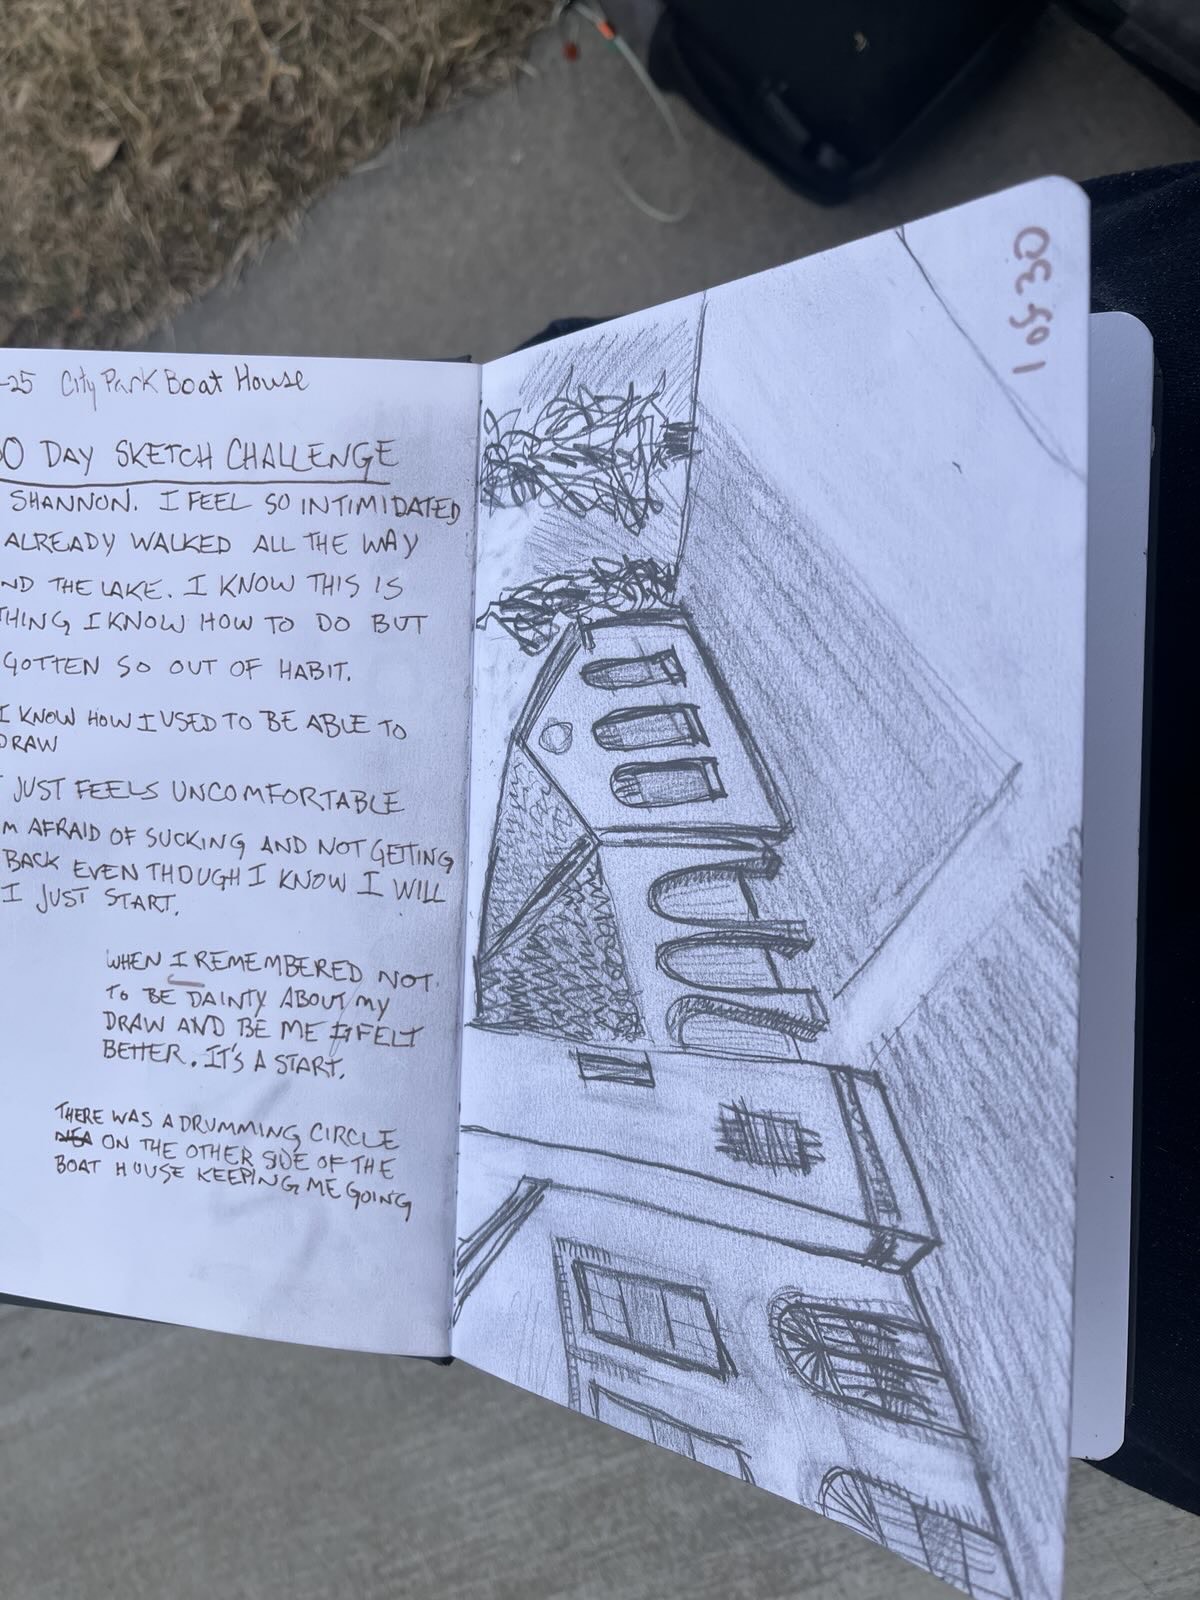 -25 City Park Boat House
0 DAY SKETCH CHALLENGE
SHANNON. I FEEL SO INTIMIDATED
ALREADY WALKED ALL THE WAY
ND THE LAKE. I KNOW THIS IS
THING I KNOW HOW TO DO BUT
GOTTEN SO OUT OF HABIT.
I KNOW HOW I USED TO BE ABLE TO
DRAW
JUST FEELS UNCOMFORTABLE
M AFRAID OF SUCKING AND NOT GETTING
BACK EVEN THOUGH I KNOW I WILL
I JUST START.
WHEN I REMEMBERED NOT
TO BE DAINTY ABOUT MY
DRAW AND BE ME IT FELT
BETTER. IT'S A START.
THERE WAS A DRUMMING CIRCLE
ON THE OTHER SIDE OF THE
BOAT HOUSE KEEPING ME GOING